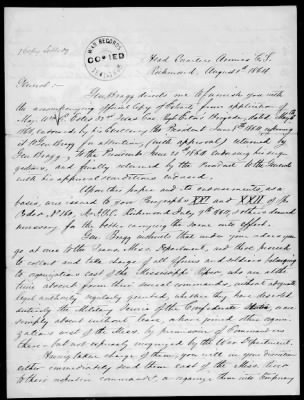 WAR RECORDS
COPIED
1861-1865
Head Quarters Armies C.S.
Richmond, August 1st 1864
General:-
Genl Bragg directs me to furnish you with
the accompanying official copy of extract from application of
May
1864, endorsed by his Excellency the President June 1864, referring
it to Genl Bragg for attention, (with approval) returned by
Genl Bragg, to the President June 1864 endorsing his
and finally returned by the President to the General
with his approval endorsed.
Upon this paper and its endorsements, as a
basis, are issued to you Paragraphs XXI and XXII of
Order No 160, A.& I.G.O. Richmond July 9th 1864, & others deemed
necessary for the better carrying the same into effect.
Gen. Bragg
you at once to the Trans. Miss. Department, and there proceed
to collect and take charge of all officers and soldiers belonging
to organizations east of the Mississippi River, who are at this
time absent from their several commands, without adequate
legal authority regularly granted, whether they have deserted
entirely the Military Service of the Confederate States, or are
simply absent without leave, or have joined other organi-
zations west of the Miss. by permission of Commanders
there - but not expressly recognized by the War Department.
Having taken charge of them, you will in your discretion
either immediately send them east of the Miss. River
to their respective commands, or organize them into temporary